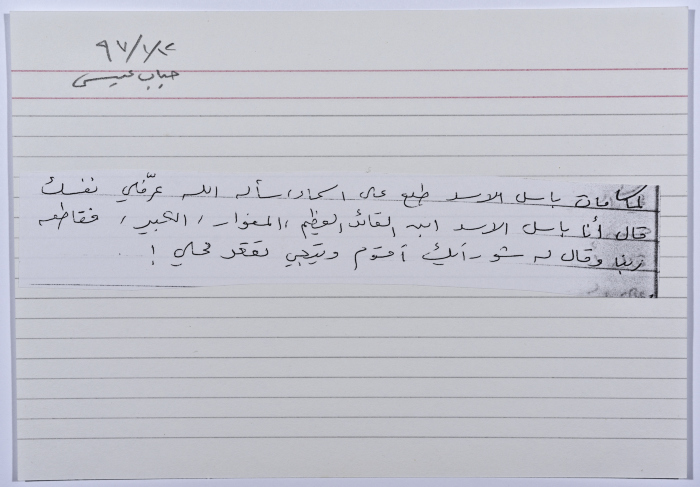 ٩٧/١/٢
حباب عيسى
لما مات باسل الاسد طلع على السما، سأله الله عرّفلي نفسك
قال أنا باسل الاسد ابن القائد العظيم، المغوار، الكبير، فقاطعه
ربنا وقال له شو رأيك أقوم وتيجي تقعد محلي !